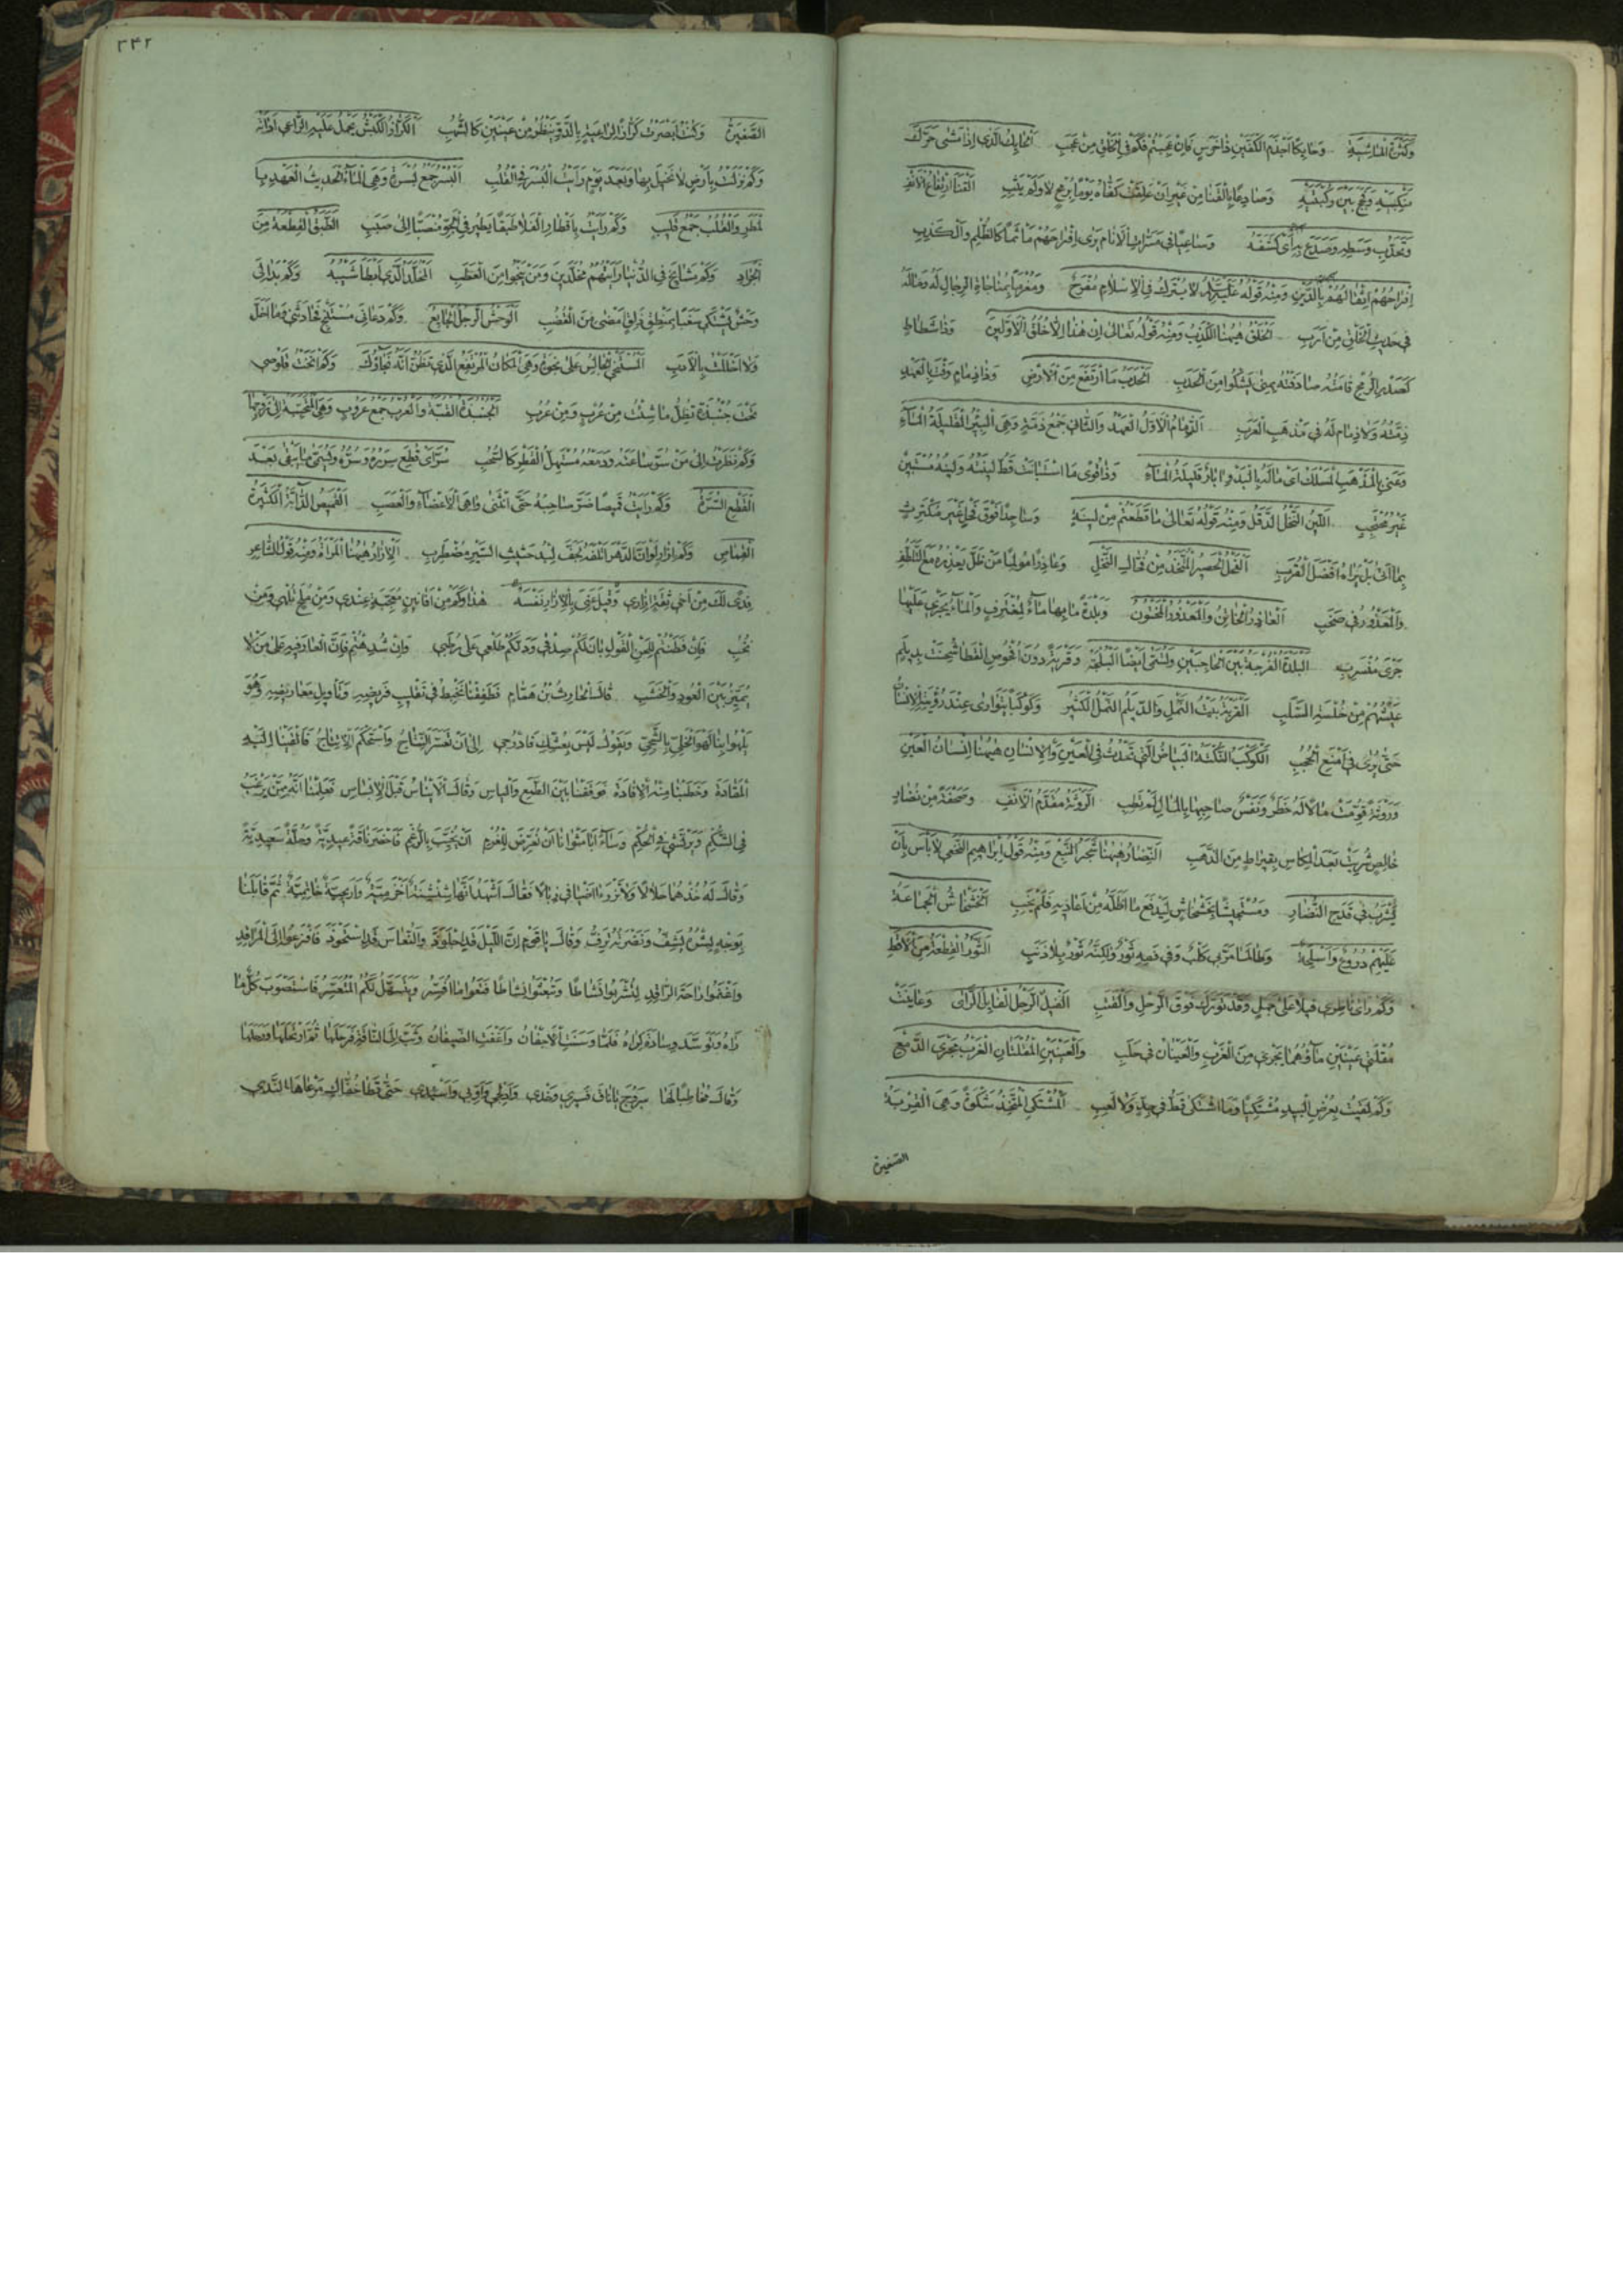 وَكَثْرَةُ الْمَاشِيَةِ وَحَايِكًا اَجْذَمَ الْكَفَّيْنِ ذَا خَرَسٍ فَاِنْ عَجِبْتُمْ فَكَمْ فِي الْخَلْقِ مِنْ عَجَبِ اَلْحَايِكُ الَّذِي اِذَا مَشٰى حَرَّكَ
مَنْكِبَيْهِ وَفَحَّجَ بَيْنَ رُكْبَتَيْهِ وَصَادِعًا بِالْقَنَا مِنْ غَيْرِ اَنْ عَلِقَتْ كَفَّاهُ يَوْمًا بِرُمْحٍ لَا وَلَمْ يَثِبِ اَلْقَنَا اِرْتِفَاعُ الْاَنْفِ
وَتَحَدُّبُ وَسَطِهِ وَصَدَعَ بِهِ اَيْ كَشَفَهُ وَسَاعِيًا فِي مَسَرَّاتِ الْاَنَامِ يَرٰى اِفْرَاحَهُمْ مَأْثَمًا كَالظُّلْمِ وَالْكَذِبِ
اِفْرَاحُهُمْ اِثْقَالُهُمْ بِالدَّيْنِ وَمِنْهُ قَوْلُهُ عَلَيْهِ السَّلَامُ لَا يُتْرَكُ فِي الْاِسْلَامِ مُفْرَحٌ وَمُغْرَمًا بِمُنَاجَاةِ الرِّجَالِ لَهُ وَمَا لَهُ
فِي حَدِيثِ الْخَلْقِ مِنْ اَرَبِ اَلْخَلْقُ هٰهُنَا الْكَذِبُ وَمِنْهُ قَوْلُهُ تَعَالٰى اِنْ هٰذَا اِلَّا خُلُقُ الْاَوَّلِينَ وَذَا شَطَاطٍ
كَصَدْرِ الرُّمْحِ قَامَتُهُ صَادَفْتُهُ بِمِنًى يَشْكُو مِنَ الْحَدَبِ اَلْحَدَبُ مَا ارْتَفَعَ مِنَ الْاَرْضِ وَذَا ذِمَامٍ وَفَتْ بِالْعَهْدِ
ذِمَّتُهُ وَلَا ذِمَامَ لَهُ فِي مَذْهَبِ الْعَرَبِ اَلذِّمَامُ الْاَوَّلُ الْعَهْدُ وَالثَّانِي جَمْعُ ذَمَّةٍ وَهِيَ الْبِئْرُ الْقَلِيلَةُ الْمَاءِ
وَعَنٰى بِالْمَذْهَبِ الْمَسْلَكَ اَيْ مَا لَهُ بِالْبَدْوِ اٰبَارٌ قَلِيلَةُ الْمَاءِ وَذَا قُوًى مَا اسْتَبَانَتْ قَطُّ لِينَتُهُ وَلِينُهُ مُسْتَبِينٌ
غَيْرُ مُحْتَجِبِ اَللِّينُ النَّخْلُ الدَّقَلُ وَمِنْهُ قَوْلُهُ تَعَالٰى مَا قَطَعْتُمْ مِنْ لِينَةٍ وَسَاجِدًا فَوْقَ فَحْلٍ غَيْرَ مُكْتَرِثٍ
بِمَا اَتٰى بَلْ يَرَاهُ اَفْضَلَ الْقُرَبِ اَلْفَحْلُ الْحَصِيرُ الْمُتَّخَذُ مِنْ فُحَّالِ النَّخْلِ وَعَاذِرًا مُولِمًا مَنْ ظَلَّ يَعْذِرُهُ مَعَ التَّلَطُّفِ
وَالْمَعْذُورُ فِي صَخَبِ اَلْعَاذِرُ الْخَاتِنُ وَالْمَعْذُورُ الْمَخْتُونُ وَبَلْدَةً مَا بِهَا مَاءٌ لِمُغْتَرِفٍ وَالْمَاءُ يَجْرِي عَلَيْهَا
جَرْيَ مُنْسَرِبِ اَلْبَلْدَةُ الْفُرْجَةُ بَيْنَ الْحَاجِبَيْنِ وَتُسَمّٰى اَيْضًا الْبُلْجَةَ وَقَرْيَةً دُونَ اُفْحُوصِ الْقَطَا شُحِنَتْ بِدَيْلَمٍ
عَيْشُهُمْ مِنْ خُلْسَةِ السَّلَبِ اَلْقَرْيَةُ بَيْتُ النَّمْلِ وَالدَّيْلَمُ النَّمْلُ الْكَثِيرُ وَكَوْكَبًا يَتَوَارٰى عِنْدَ رُؤْيَتِهِ الْاِنْسَانُ
حَتّٰى يُرٰى فِي اَمْنَعِ الْحُجُبِ اَلْكَوْكَبُ النُّكْتَةُ الْبَيَاضُ الَّتِي تَحْدُثُ فِي الْعَيْنِ وَالْاِنْسَانُ هٰهُنَا اِنْسَانُ الْعَيْنِ
وَرَوْثَةً قُوِّمَتْ مَالًا لَهُ خَطَرٌ وَنَفْسُ صَاحِبِهَا بِالْمَالِ لَمْ تَطِبِ اَلرَّوْثَةُ مُقَدَّمُ الْاَنْفِ وَصَحْفَةً مِنْ نُضَارٍ
خَالِصٍ شُرِيَتْ بَعْدَ الْمِكَاسِ بِقِيرَاطٍ مِنَ الذَّهَبِ اَلنُّضَارُ هٰهُنَا شَجَرُ النَّبْعِ وَمِنْهُ قَوْلُ اِبْرَاهِيمَ النَّخَعِي لَا بَأْسَ بِاَنْ
يُشْرَبَ فِي قَدَحِ النُّضَارِ وَمُسْتَجِيشًا بِخَشْخَاشٍ لِيَدْفَعَ مَا اَظَلَّهُ مِنْ اَعَادِيهِ فَلَمْ يَخِبِ اَلْخَشْخَاشُ الْجَمَاعَةُ
عَلَيْهِمْ دُرُوعٌ وَاَسْلِحَةٌ وَطَالَمَا مَرَّ بِي كَلْبٌ وَفِي فَمِهِ ثَوْرٌ وَلٰكِنَّهُ ثَوْرٌ بِلَا ذَنَبِ اَلثَّوْرُ الْقِطْعَةُ مِنَ الْاَقِطِ
وَكَمْ رَاٰى نَاظِرِي فِيلًا عَلٰى جَمَلٍ وَقَدْ تَوَرَّكَ فَوْقَ الرَّحْلِ وَالْقَتَبِ اَلْفِيلُ الرَّجُلُ الْفَايِلُ الرَّايِ وَعَايَنَتْ
مُقْلَتِي عَيْنَيْنِ مَاؤُهُمَا يَجْرِي مِنَ الْغَرْبِ وَالْعَيْنَانِ فِي حَلَبِ وَالْعَيْنَيْنِ الْمُقْلَتَانِ الْغَرْبُ مَجْرَى الدَّمْعِ
وَكَمْ لَقِيتُ بِعُرْضِ الْبِيدِ مُشْتَكِيًا وَمَا اشْتَكٰى قَطُّ فِي جِدٍّ وَلَا لَعِبِ اَلْمُشْتَكِي الْمُتَّخِذُ شَكْوَةً وَهِيَ الْقِرْبَةُ
الصغيرة
٢٤٢
الصَّغِيرَةُ وَكُنْتُ اَبْصَرْتُ كَرَّازًا لِرَاعِيَةٍ بِالدَّوِّ يَنْظُرُ مِنْ عَيْنَيْنِ كَالشُّهُبِ اَلْكَرَّازُ الْكَبْشُ يَحْمِلُ عَلَيْهِ الرَّاعِي اَدَاتَهُ
وَكَمْ نَزَلْتُ بِاَرْضٍ لَا نَخِيلَ بِهَا وَبَعْدَ يَوْمٍ رَاَيْتُ الْبُسْرَ فِي الْقُلُبِ اَلْبُسْرُ جَمْعُ بُسْرَةٍ وَهِيَ الْمَاءُ الْحَدِيثُ الْعَهْدِ بِا
لْمَطَرِ وَالْقُلُبُ جَمْعُ قَلِيبٍ وَكَمْ رَاَيْتُ بِاَقْطَارِ الْفَلَا طَبَقًا يَطِيرُ فِي الْجَوِّ مُنْصَبًّا اِلٰى صَبَبِ اَلطَّبَقُ الْقِطْعَةُ مِنَ
الْجَرَادِ وَكَمْ مَشَايِخَ فِي الدُّنْيَا رَاَيْتُهُمْ مُخَلَّدِينَ وَمَنْ يَنْجُو مِنَ الْعَطَبِ اَلْمُخَلَّدُ الَّذِي اَبْطَا شَيْبُهُ وَكَمْ بَدَا لِي
وَحْشٌ يَشْتَكِي سَغَبًا بِمَنْطِقٍ ذَلِقٍ اَمْضٰى مِنَ الْقُضُبِ اَلْوَحْشُ الرَّجُلُ الْجَايِعُ وَكَمْ دَعَانِي مُسْتَنْجٍ فَحَادَثَنِي وَمَا اَخَلَّ
وَلَا اَخْلَلْتُ بِالْاَدَبِ اَلْمُسْتَنْجِي الْجَالِسُ عَلٰى نَجْوَةٍ وَهِيَ الْمَكَانُ الْمُرْتَفِعُ الَّذِي تَظُنُّ اَنَّهُ نَجَاؤُكَ وَكَمْ اَنَخْتُ قَلُوصِي
تَحْتَ جُنْبُذَةٍ تُظِلُّ مَا شِئْتَ مِنْ عُرْبٍ وَمِنْ عُرُبِ اَلْجُنْبُذَةُ الْقُبَّةُ وَالْعُرُبُ جَمْعُ عَرُوبٍ وَهِيَ الْمُتَحَبِّبَةُ اِلٰى زَوْجِهَا
وَكَمْ نَظَرْتُ اِلٰى مَنْ سُرَّ سَاعَتَهُ وَدَمْعُهُ مُسْتَهِلُّ الْقَطْرِ كَالسُّحُبِ سُرَّ اَيْ قُطِعَ سُرُرُهُ وَسُرُّهُ وَتُسَمّٰى مَا يَبْقٰى بَعْدَ
الْقَطْعِ السُّرَّةُ وَكَمْ رَاَيْتُ قَمِيصًا ضَرَّ صَاحِبَهُ حَتَّى انْثَنٰى وَاهِيَ الْاَعْضَاءِ وَالْعَصَبِ اَلْقَمِيصُ الدَّابَّةُ الْكَثِيرَةُ
الْقُمَاصِ وَكَمْ اِزَارٍ لَوْ اَنَّ الدَّهْرَ اَتْلَفَهُ لَجَفَّ لِبْدُ حَثِيثِ السَّيْرِ مُضْطَرِبِ اَلْاِزَارُ هٰهُنَا الْمَرْاَةُ وَمِنْهُ قَوْلُ الشَّاعِرِ
فِدًى لَكَ مِنْ اَخِي ثِقَةٍ اِزَارِي وَقِيلَ عَنٰى بِالْاِزَارِ نَفْسَهُ هٰذَا وَكَمْ مِنْ اَفَانِينَ مُعْجِبَةٍ عِنْدِي وَمِنْ مُلَحٍ تُلْهِي وَمِنْ
نُخَبِ فَاِنْ فَطَنْتُمْ لِلَحْنِ الْقَوْلِ بَانَ لَكُمْ صِدْقِي وَدَلَّكُمْ طَلْعِي عَلٰى رُطَبِي وَاِنْ شُدِهْتُمْ فَاِنَّ الْعَارَ فِيهِ عَلٰى مَنْ لَا
يُمَيِّزُ بَيْنَ الْعُودِ وَالْخَشَبِ قَالَ الْحَارِثُ بْنُ هَمَّامٍ فَطَفِقْنَا نَخْبِطُ فِي تَقْلِيبِ قَرِيضِهِ وَتَاوِيلِ مَعَارِيضِهِ وَهُوَ
يَلْهُو بِنَا لَهْوَ الْخَلِيِّ بِالشَّجِيِّ وَيَقُولُ لَيْسَ بِعُشِّكِ فَادْرُجِي اِلٰى اَنْ تَعَسَّرَ النِّتَاجُ وَاسْتَحْكَمَ الْاِرْتِتَاجُ فَاَلْقَيْنَا اِلَيْهِ
الْمَقَادَةَ وَخَطَبْنَا مِنْهُ الْاِفَادَةَ فَوَقَفَنَا بَيْنَ الطَّمَعِ وَالْيَاسِ وَقَالَ الْاِينَاسُ قَبْلَ الْاِبْسَاسِ فَعَلِمْنَا اَنَّهُ مِمَّنْ يَرْغَبُ
فِي الشُّكْمِ وَيَرْتَشِي فِي الْحُكْمِ وَسَاءَ اَبَا مَثْوَانَا اَنْ نُعَرَّضَ لِلْغُرْمِ اَوْ نُخَيَّبَ بِالرُّغْمِ فَاَحْضَرَ نَاقَةً عِيدِيَّةً وَحُلَّةً سَعِيدِيَّةً
وَقَالَ لَهُ خُذْهُمَا حَلَالًا وَلَا تَرْزَءْ اَضْيَافِي زِبَالًا فَقَالَ اَشْهَدُ اَنَّهَا شِنْشِنَةٌ اَخْزَمِيَّةٌ وَاَرْيَحِيَّةٌ حَاتِمِيَّةٌ ثُمَّ قَابَلَنَا
بِوَجْهٍ بِشْرُهُ يَشِفُّ وَنَضْرَتُهُ تَرِفُّ وَقَالَ يَا قَوْمِ اِنَّ اللَّيْلَ قَدِ اجْلَوَّذَ وَالنُّعَاسَ قَدِ اسْتَحْوَذَ فَافْزَعُوا اِلَى الْمَرَاقِدِ
وَاغْتَنِمُوا رَاحَةَ الرَّاقِدِ لِتَشْرَبُوا نَشَاطًا وَتُبْعَثُوا نِشَاطًا فَتَعُوا مَا اُفَسِّرُ وَيَتَسَهَّلَ لَكُمُ الْمُتَعَسِّرُ فَاسْتَصْوَبَ كُلٌّ مَا
رَاٰهُ وَتَوَسَّدَ وِسَادَةَ كَرَاهُ فَلَمَّا وَسَنَتِ الْاَجْفَانُ وَاَغْفَتِ الضِّيفَانُ وَثَبَ اِلَى النَّاقَةِ فَرَحَلَهَا ثُمَّ ارْتَحَلَهَا وَرَحَّلَهَا
وَقَالَ مُخَاطِبًا لَهَا سَرُوجَ يَا نَاقَ فَسِيرِي وَخِدِي وَاَدْلِجِي وَاَوِّبِي وَاَسْئِدِي حَتّٰى تَطَا خُفَّاكِ مَرْعَاهَا النَّدِي